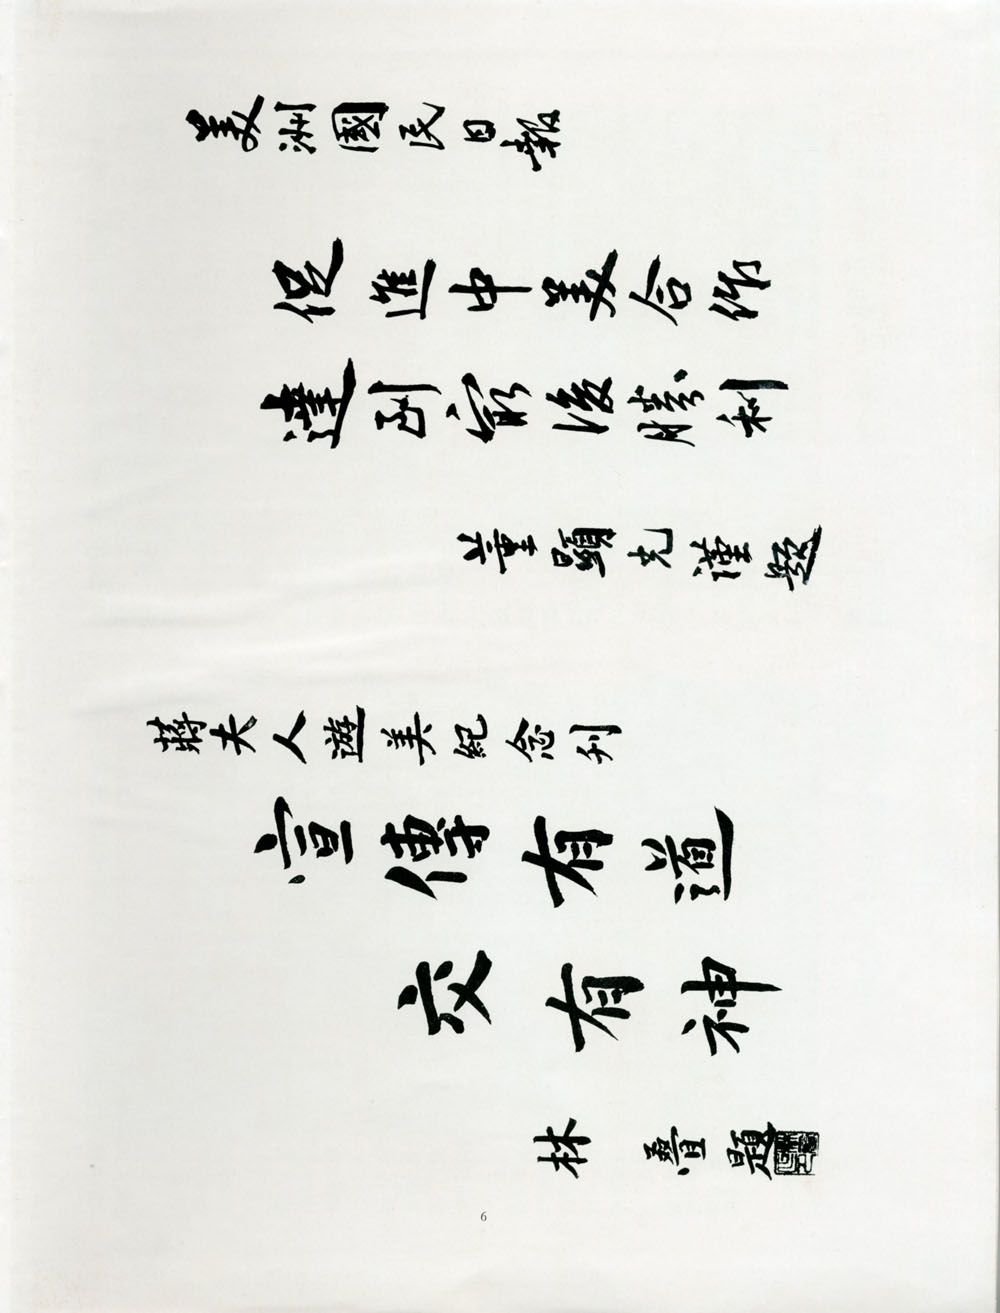 美洲國民日報
促進中美合作
達到最後勝利
董顯光謹題
蔣夫人遊美紀念刊
宣傳有道
交有神
林疊題
6